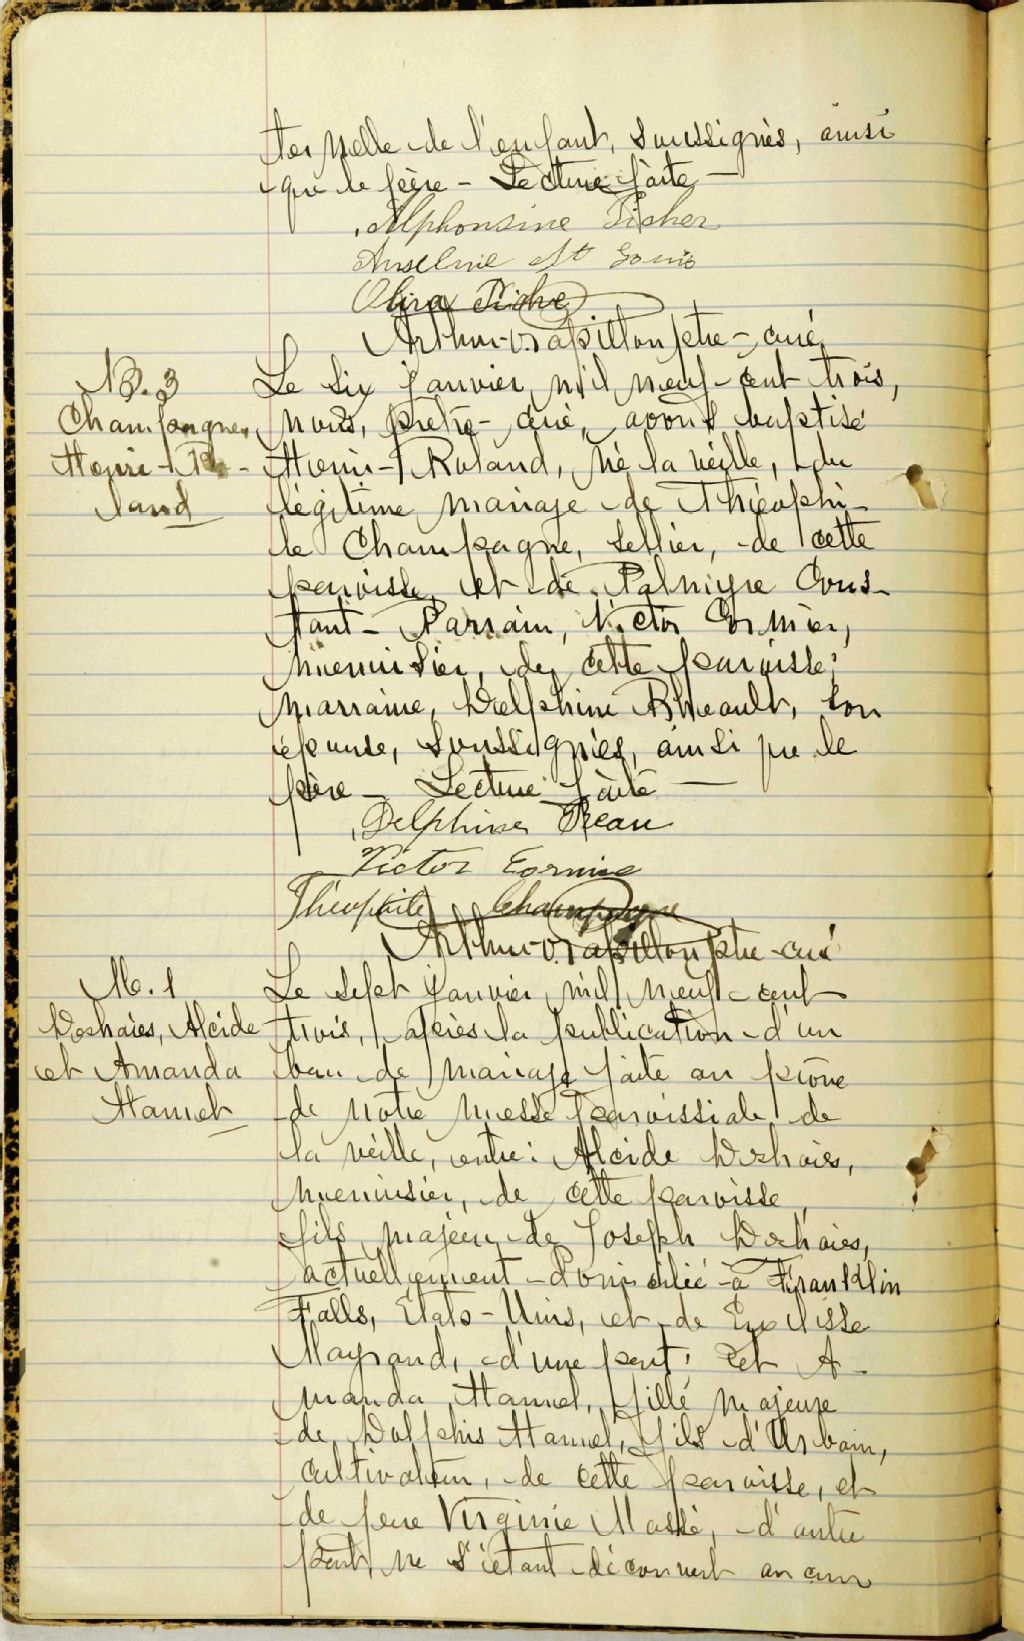 ternelle de l'enfant, soussignés, ainsi
que le père - Lecture faite -
Alphonsine Picher
Anselme St Louis
Picher
Arthur O. Papillon ptre-curé
B. 3
Champagne,
Henri-Ro-
land
Le six janvier mil neuf-cent trois,
nous, prêtre-curé, avons baptisé
Henri-Roland, né la veille, du
légitime mariage de Théophi-
le Champagne, sellier, de cette
paroisse, et de Palmyre Cous-
tant - Parrain, Victor Cormier,
menuisier, de cette paroisse;
marraine, Delphine Rheault, son
épouse, soussignés, ainsi que le
père - Lecture faite -
Delphine Reau
Victor Cormie
Théophile Champagne
Arthur O. Papillon ptre-curé
M. 1
Deshaies, Alcide
et Amanda
Hamel
Le sept janvier mil neuf-cent
trois, après la publication d'un
ban de mariage faite au prône
de notre messe paroissiale de
la veille, entre: Alcide Deshaies,
menuisier, de cette paroisse,
fils majeur de Joseph Deshaies,
actuellement domicilié à Franklin
Falls, Etats-Unis, et de
Mayrand, d'une part; et A-
manda Hamel, fille majeure
de Dolphis Hamel, fils d'Urbain,
cultivateur, de cette paroisse, et
de feue Virginie Massé, d'autre
part, ne s'étant découvert aucun